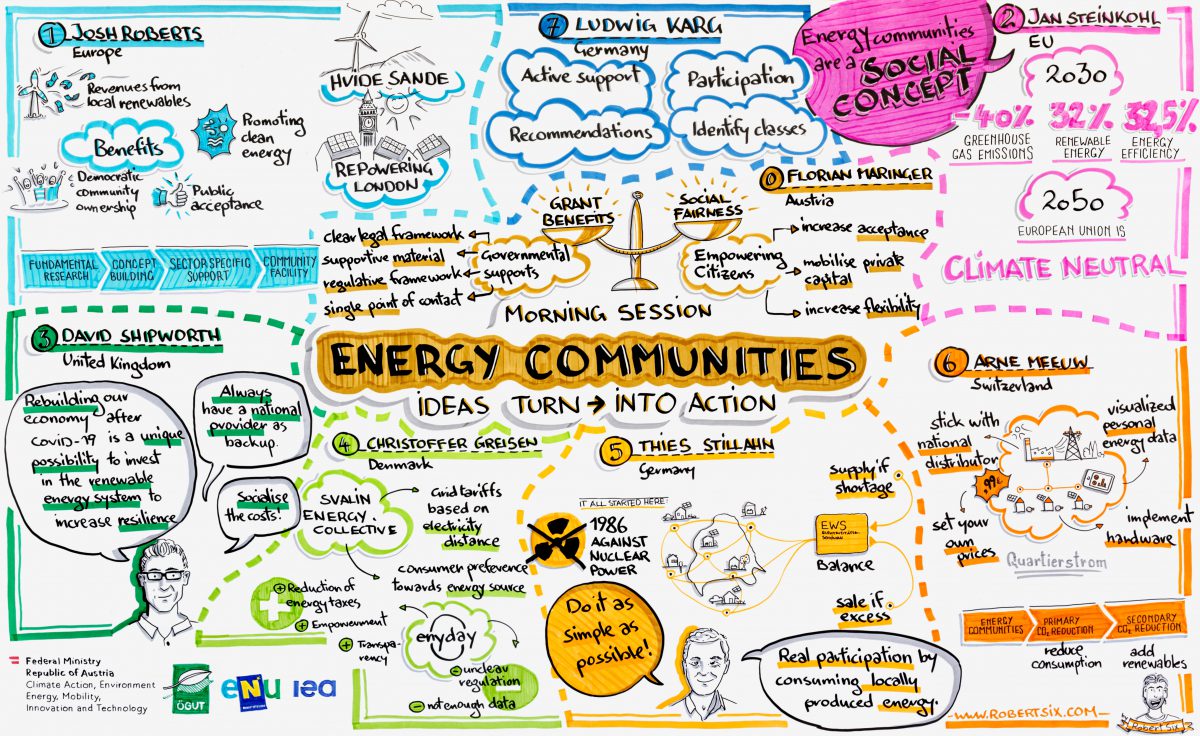 1 JOSH ROBERTS
Europe
Revenues from
local renewables
Benefits
Promoting
clean
energy
Democratic
community
ownership
Public
acceptance
FUNDAMENTAL
RESEARCH
CONCEPT
BUILDING
SECTOR SPECIFIC
SUPPORT
COMMUNITY
FACILITY
HVIDE SANDE
REPOWERING
LONDON
7 LUDWIG KARG
Germany
Active support
Participation
Recommendations
Identify classes
Energy communities
are a SOCIAL
CONCEPT
2 JAN STEINKOHL
EU
2030
-40%
GREENHOUSE
GAS EMISSIONS
32%
RENEWABLE
ENERGY
32,5%
ENERGY
EFFICIENCY
2050
EUROPEAN UNION IS
CLIMATE NEUTRAL
0 FLORIAN MARINGER
Austria
GRANT
BENEFITS
SOCIAL
FAIRNESS
clear legal framework
supportive material
regulative framework
single point of contact
Governmental
supports
Empowering
Citizens
increase acceptance
mobilise private
capital
increase flexibility
MORNING SESSION
ENERGY COMMUNITIES
IDEAS TURN → INTO ACTION
3 DAVID SHIPWORTH
United Kingdom
Rebuilding our
economy after
COVID-19 is a unique
possibility to invest
in the renewable
energy system to
increase resilience
Always
have a national
provider as
backup.
Socialise
the costs!
4 CHRISTOFFER GREISEN
Denmark
SVALIN
ENERGY
COLLECTIVE
Grid tariffs
based on
electricity
distance
consumer preference
towards energy source
+ Reduction of
energy taxes
+ Empowerment
+ Transpa-
rency
enyday
- unclear
regulation
- not enough data
5 THIES STILLAHN
Germany
IT ALL STARTED HERE
1986
AGAINST
NUCLEAR
POWER
supply if
shortage
EWS
Balance
sale if
excess
Do it as
simple as
possible!
Real participation by
consuming locally
produced energy.
6 ARNE MEEUW
Switzerland
stick with
national
distributor
visualized
personal
energy data
.99€
set your
own
prices
implement
hardware
Quartierstrom
ENERGY
COMMUNITIES
PRIMARY
CO₂ REDUCTION
SECONDARY
CO₂ REDUCTION
reduce
consumption
add
renewables
Federal Ministry
Republic of Austria
Climate Action, Environment
Energy, Mobility,
Innovation and Technology
ÖGUT
eNu
iea
- WWW.ROBERTSIX.COM -
Robert Six